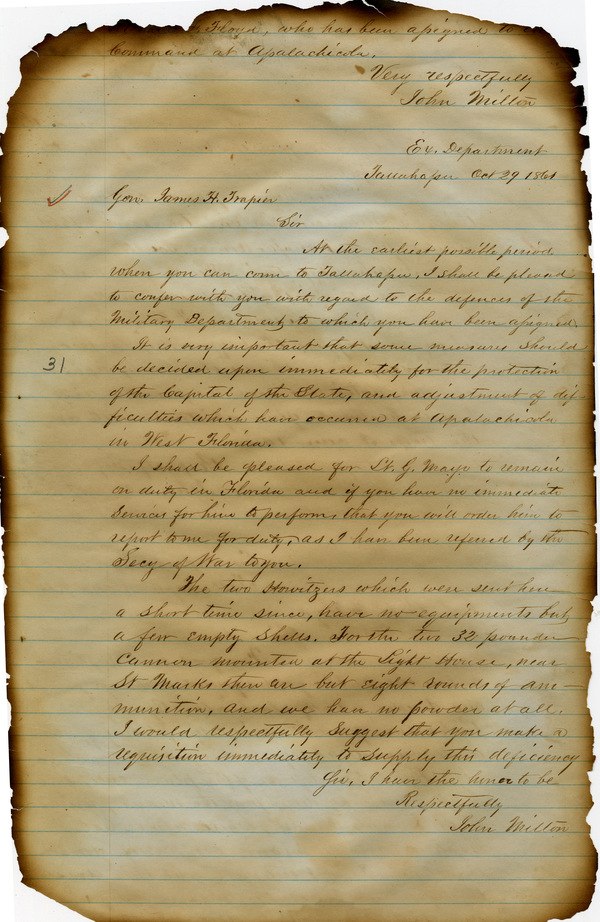 Floyd, who has been assigned to
Command at Apalachicola.
Very respectfully
John Milton
Ex. Department
Tallahassee Oct 29 1861
Gen. James H. Trapier
Sir
At the earliest possible period
when you can come to Tallahassee, I shall be pleased
to confer with you with regard to the defences of the
Military Department to which you have been assigned.
It is very important that some measures should
31
be decided upon immediately for the protection
of the Capital of the State, and adjustment of dif-
ficulties which have occurred at Apalachicola
in West Florida.
I shall be pleased for Lt. G. Mayo to remain
on duty in Florida and if you have no immediate
services for him to perform, that you will order him to
report to me for duty, as I have been referred by the
Secy of War to you.
The two Howitzers which were sent here
a short time since, have no equipments but
a few empty shells. For the two 32 pounder
Cannon mounted at the Light House, near
St Marks there are but eight rounds of am-
munition, and we have no powder at all.
I would respectfully suggest that you make a
requisition immediately to supply this deficiency
Sir, I have the honor to be
Respectfully
John Milton